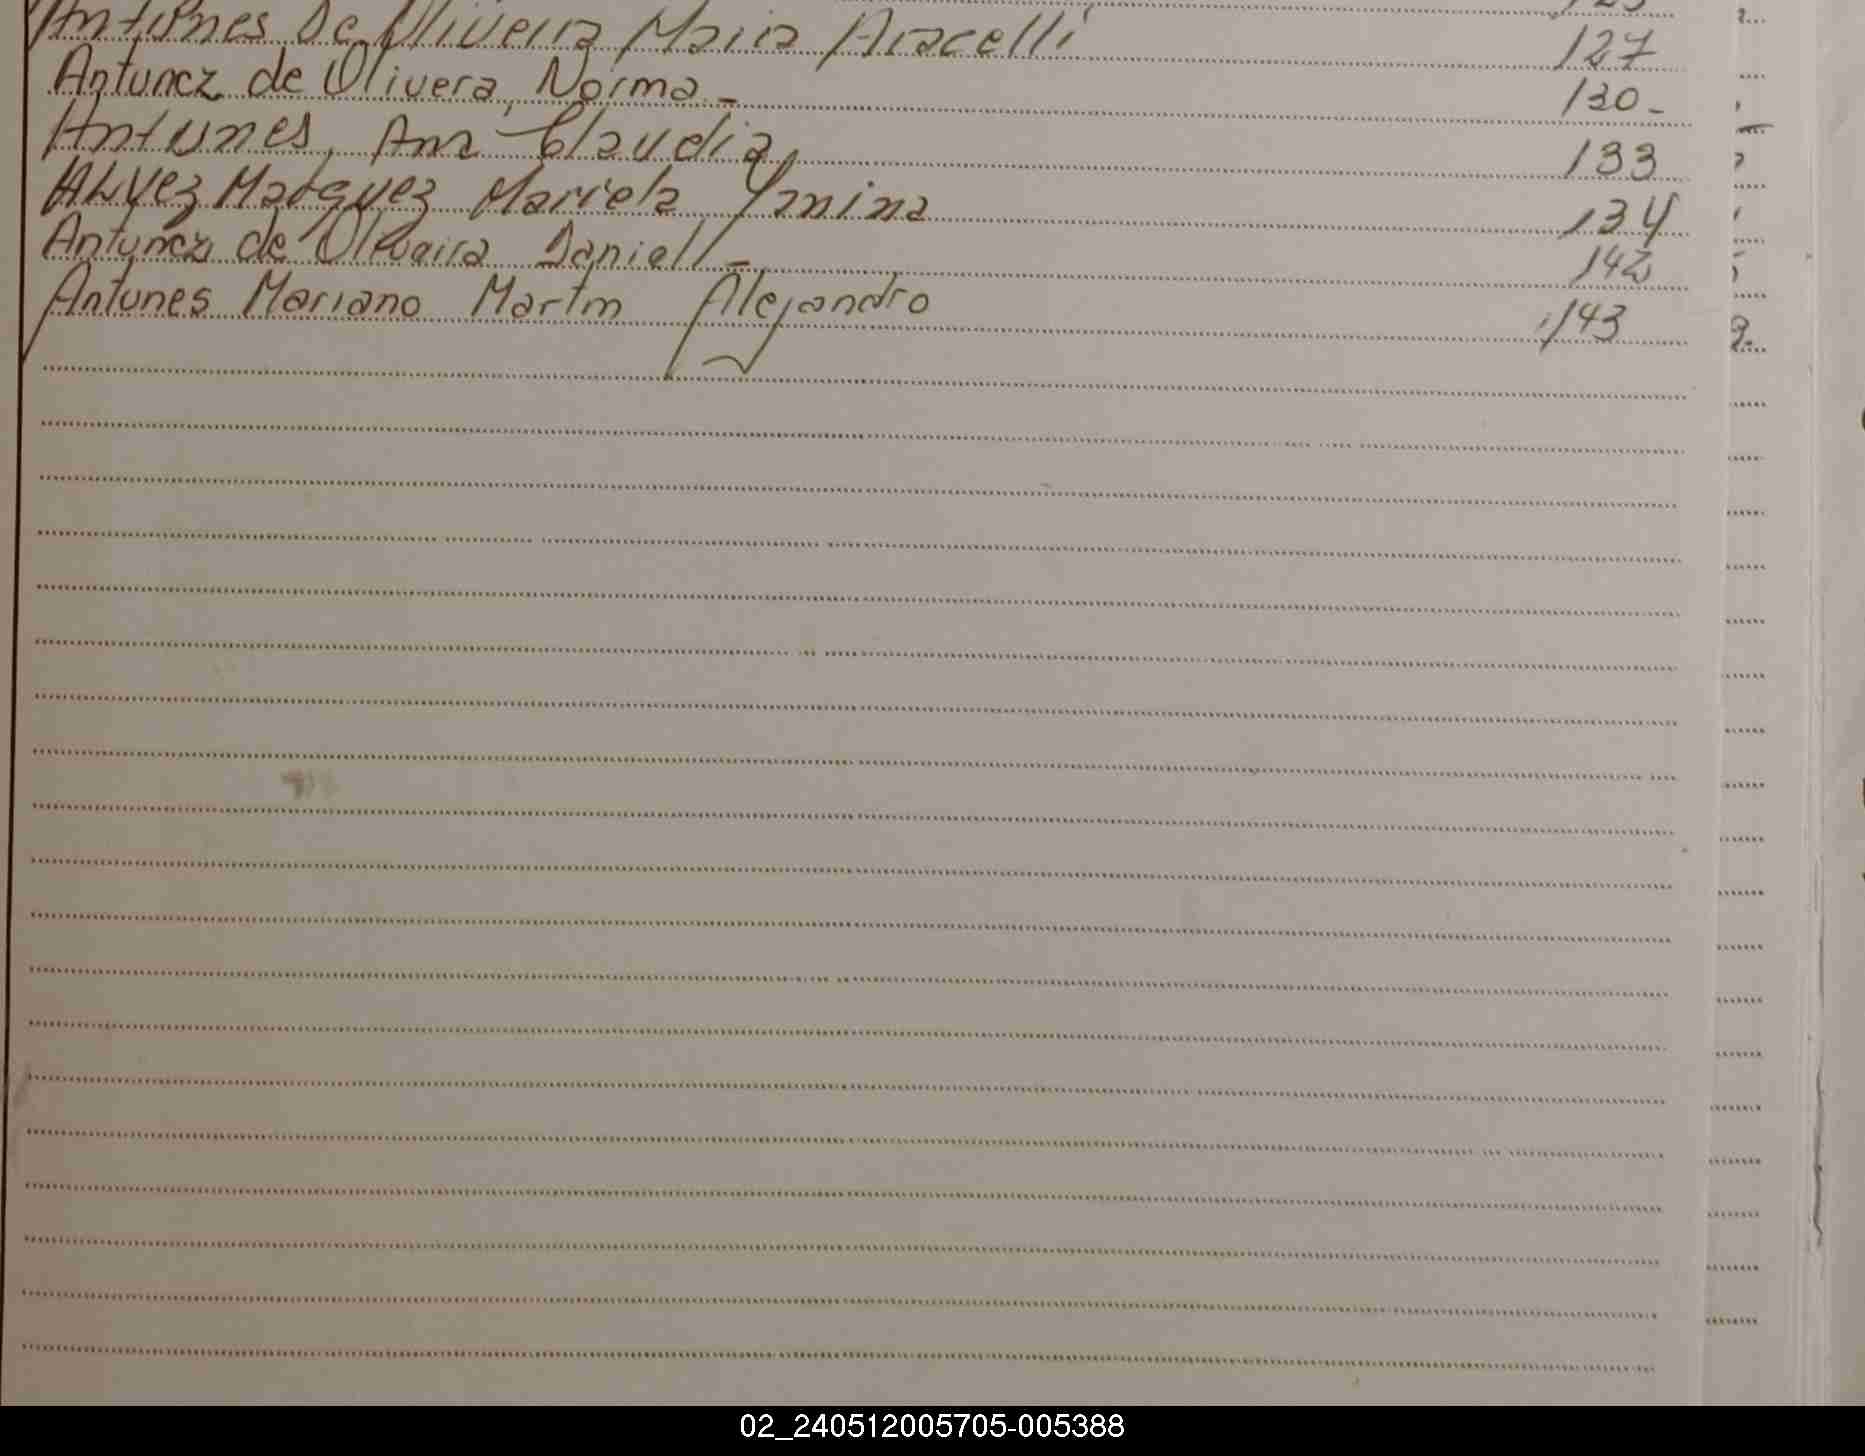 Antunes De Oliveira Maria Aracelli 127
Antunez de Olivera, Norma - 130 -
Antunes, Ana Claudia 133
ALvez Marquez Mariela Yanina 134
Antunez de Oliveira Daniell - 142
Antunes Mariano Martin Alejandro 143
02_240512005705-005388